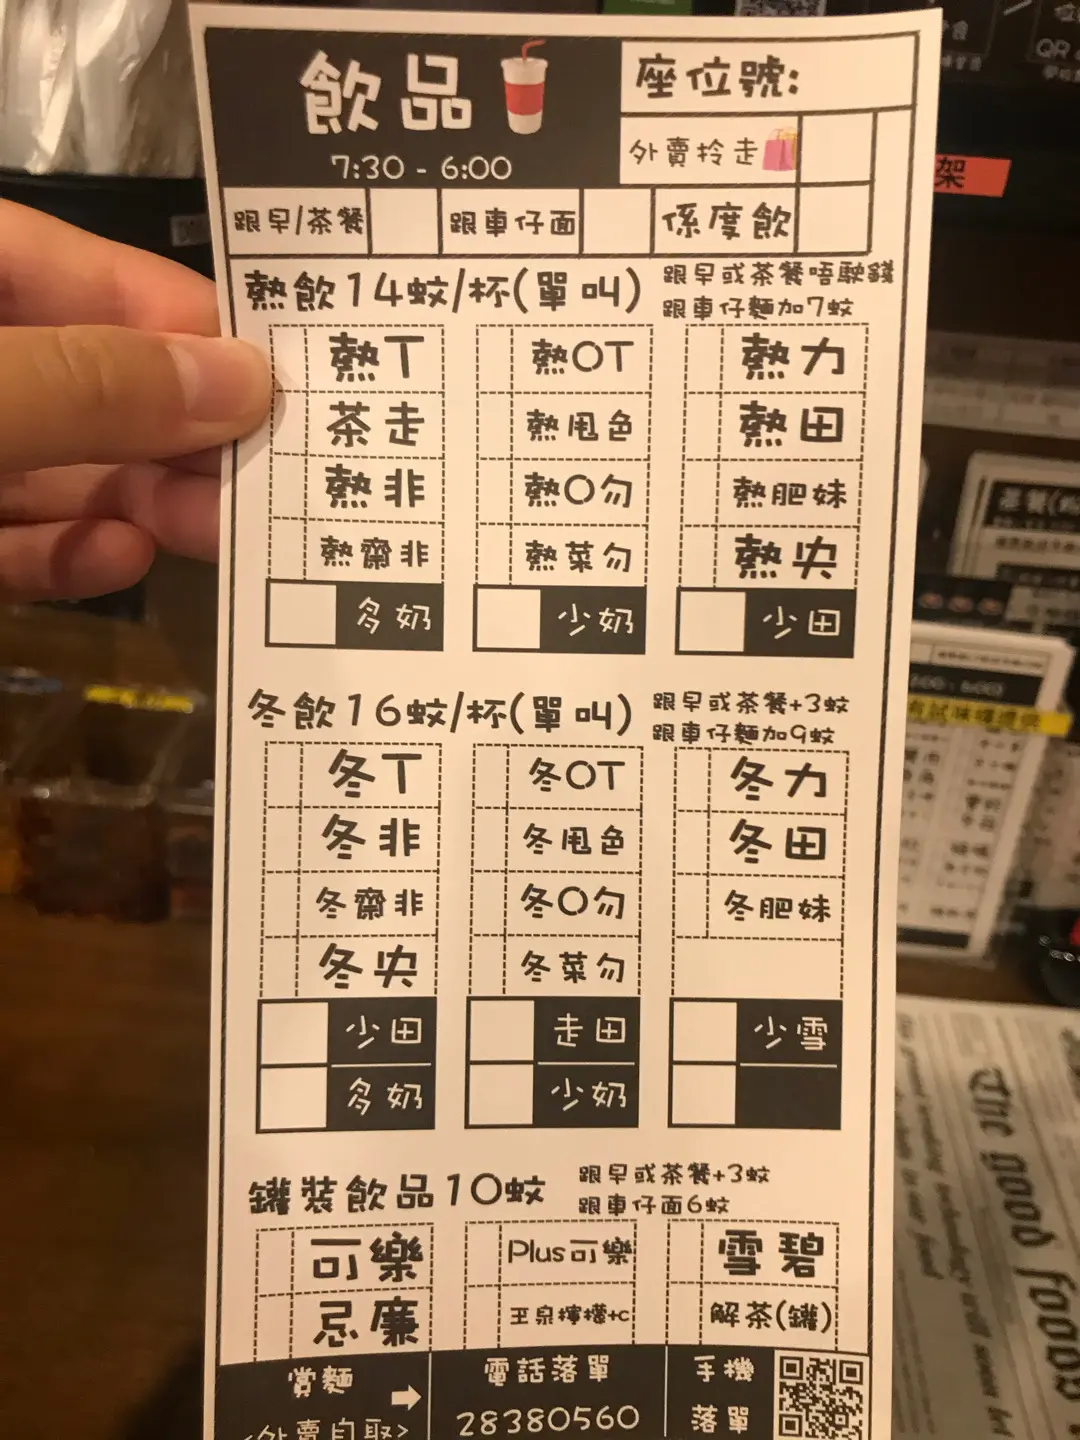 飲品
7:30 - 6:00
座位號:
外賣拎走
跟早/茶餐
跟車仔面
係度飲
熱飲14蚊/杯(單叫)
跟早或茶餐唔駛錢
跟車仔麵加7蚊
熱T
熱OT
熱力
茶走
熱甩色
熱田
熱非
熱O勿
熱肥妹
熱齋非
熱菜勿
熱央
多奶
少奶
少田
冬飲16蚊/杯(單叫)
跟早或茶餐+3蚊
跟車仔麵加9蚊
冬T
冬OT
冬力
冬非
冬甩色
冬田
冬齋非
冬O勿
冬肥妹
冬央
冬菜勿
少田
走田
少雪
多奶
少奶
罐裝飲品10蚊
跟早或茶餐+3蚊
跟車仔面6蚊
可樂
Plus可樂
雪碧
忌廉
玉泉檸檬+c
解茶(罐)
賞麵
<外賣自取>
電話落單
28380560
手機
落單
架
QR
The Good Food